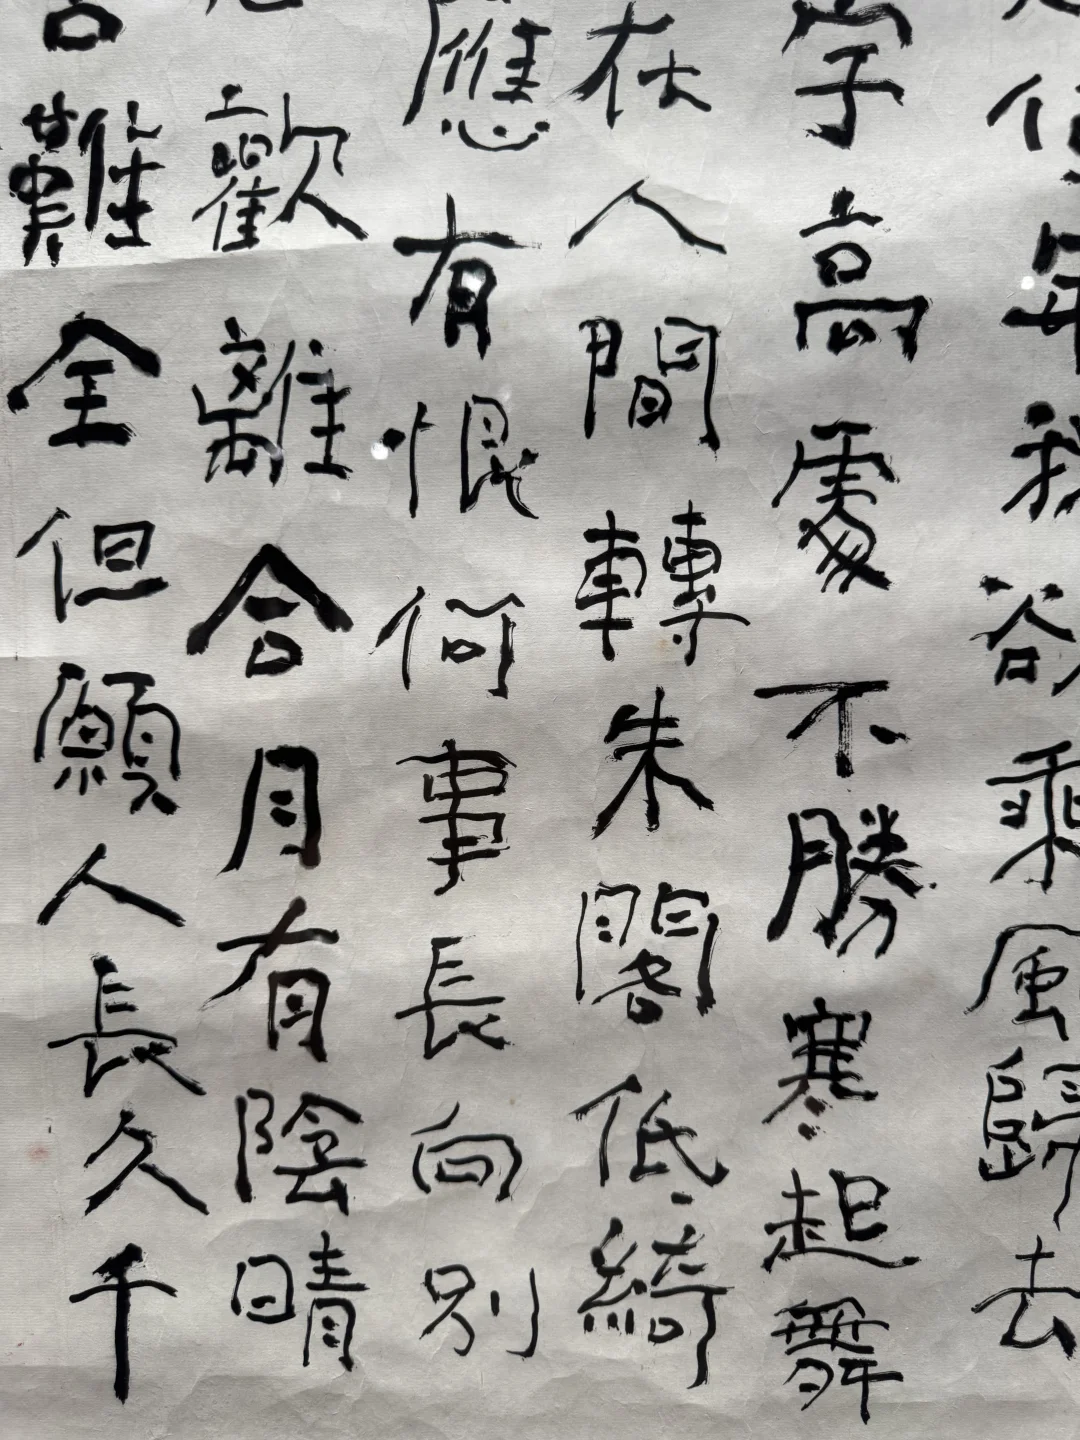 何年我欲乘風歸去
宇高處不勝寒起舞
在人間轉朱閣低綺
應有恨何事長向別
歡離合月有陰晴
難全但願人長久千